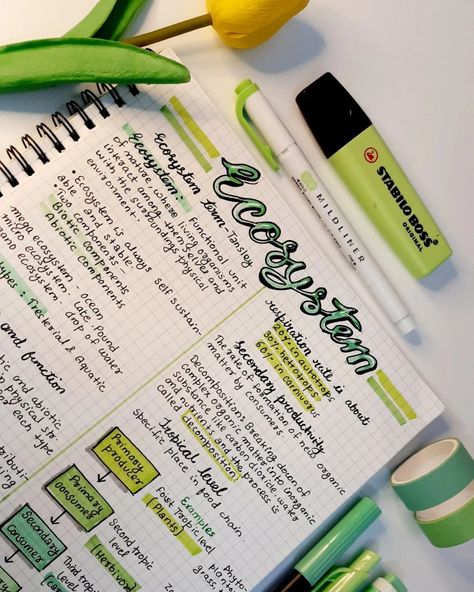 Ecosystem
Ecosystem term - Tansley
Ecosystem: Functional unit
of nature where living organisms
interact among themselves and
with the surrounding physical
environment.
• Ecosystem is always self sustain-
able and
Abiotic components
mega ecosystem - ocean
micro ecosystem - Lake, Pond
nano ecosystem - drop of water
Types: Terrestrial & Aquatic
and function
biotic and abiotic
physical
of each type
respiration rate is about
20% in autotrop
30% hetrotrops
60% in carnivor.
Secondary productivity
The rate of formation of new organic
matter by consumers
Decomposition: Breaking down of
complex organic matter into inorganic
substance like carbon dioxide, water
and nutrients and the process is
called decomposition
Tropical level
Specific place in food chain.
Examples
First Tropic level
(Plants)
Second tropic
level
(Herbivor
Third tropic
level
Primary
producer
Primary
consumer
Secondary
consumer
Phyto-
plankto
grass, t
MILDLINER
STABILO BOSS
ORIGINAL